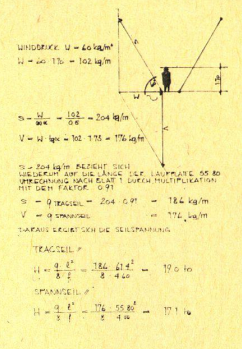 WINDDRUCK W = 60 kg/m²
W = 60 · 1.70 = 102 kg/m
S = W / cos α = 102 / 0.5 = 204 kg/m
V = W · tgα = 102 · 1.73 = 176 kg/m
W
V
S = 204 kg/m BEZIEHT SICH
WIEDERUM AUF DIE LÄNGE DER LAUFPLATTE 55.80
UMRECHNUNG NACH BLATT 1 DURCH MULTIPLIKATION
MIT DEM FAKTOR 0.91
S = q TRAGSEIL = 204 · 0.91 = 186 kg/m
V = q SPANNSEIL = 176 kg/m
DARAUS ERGIBT SICH DIE SEILSPANNUNG
TRAGSEIL
H = q · l² / 8 · f = 186 · 61.4² / 8 · 4.60 = 19.0 to
SPANNSEIL
H = q · l² / 8 · f = 176 · 55.80² / 8 · 4.00 = 17.1 to